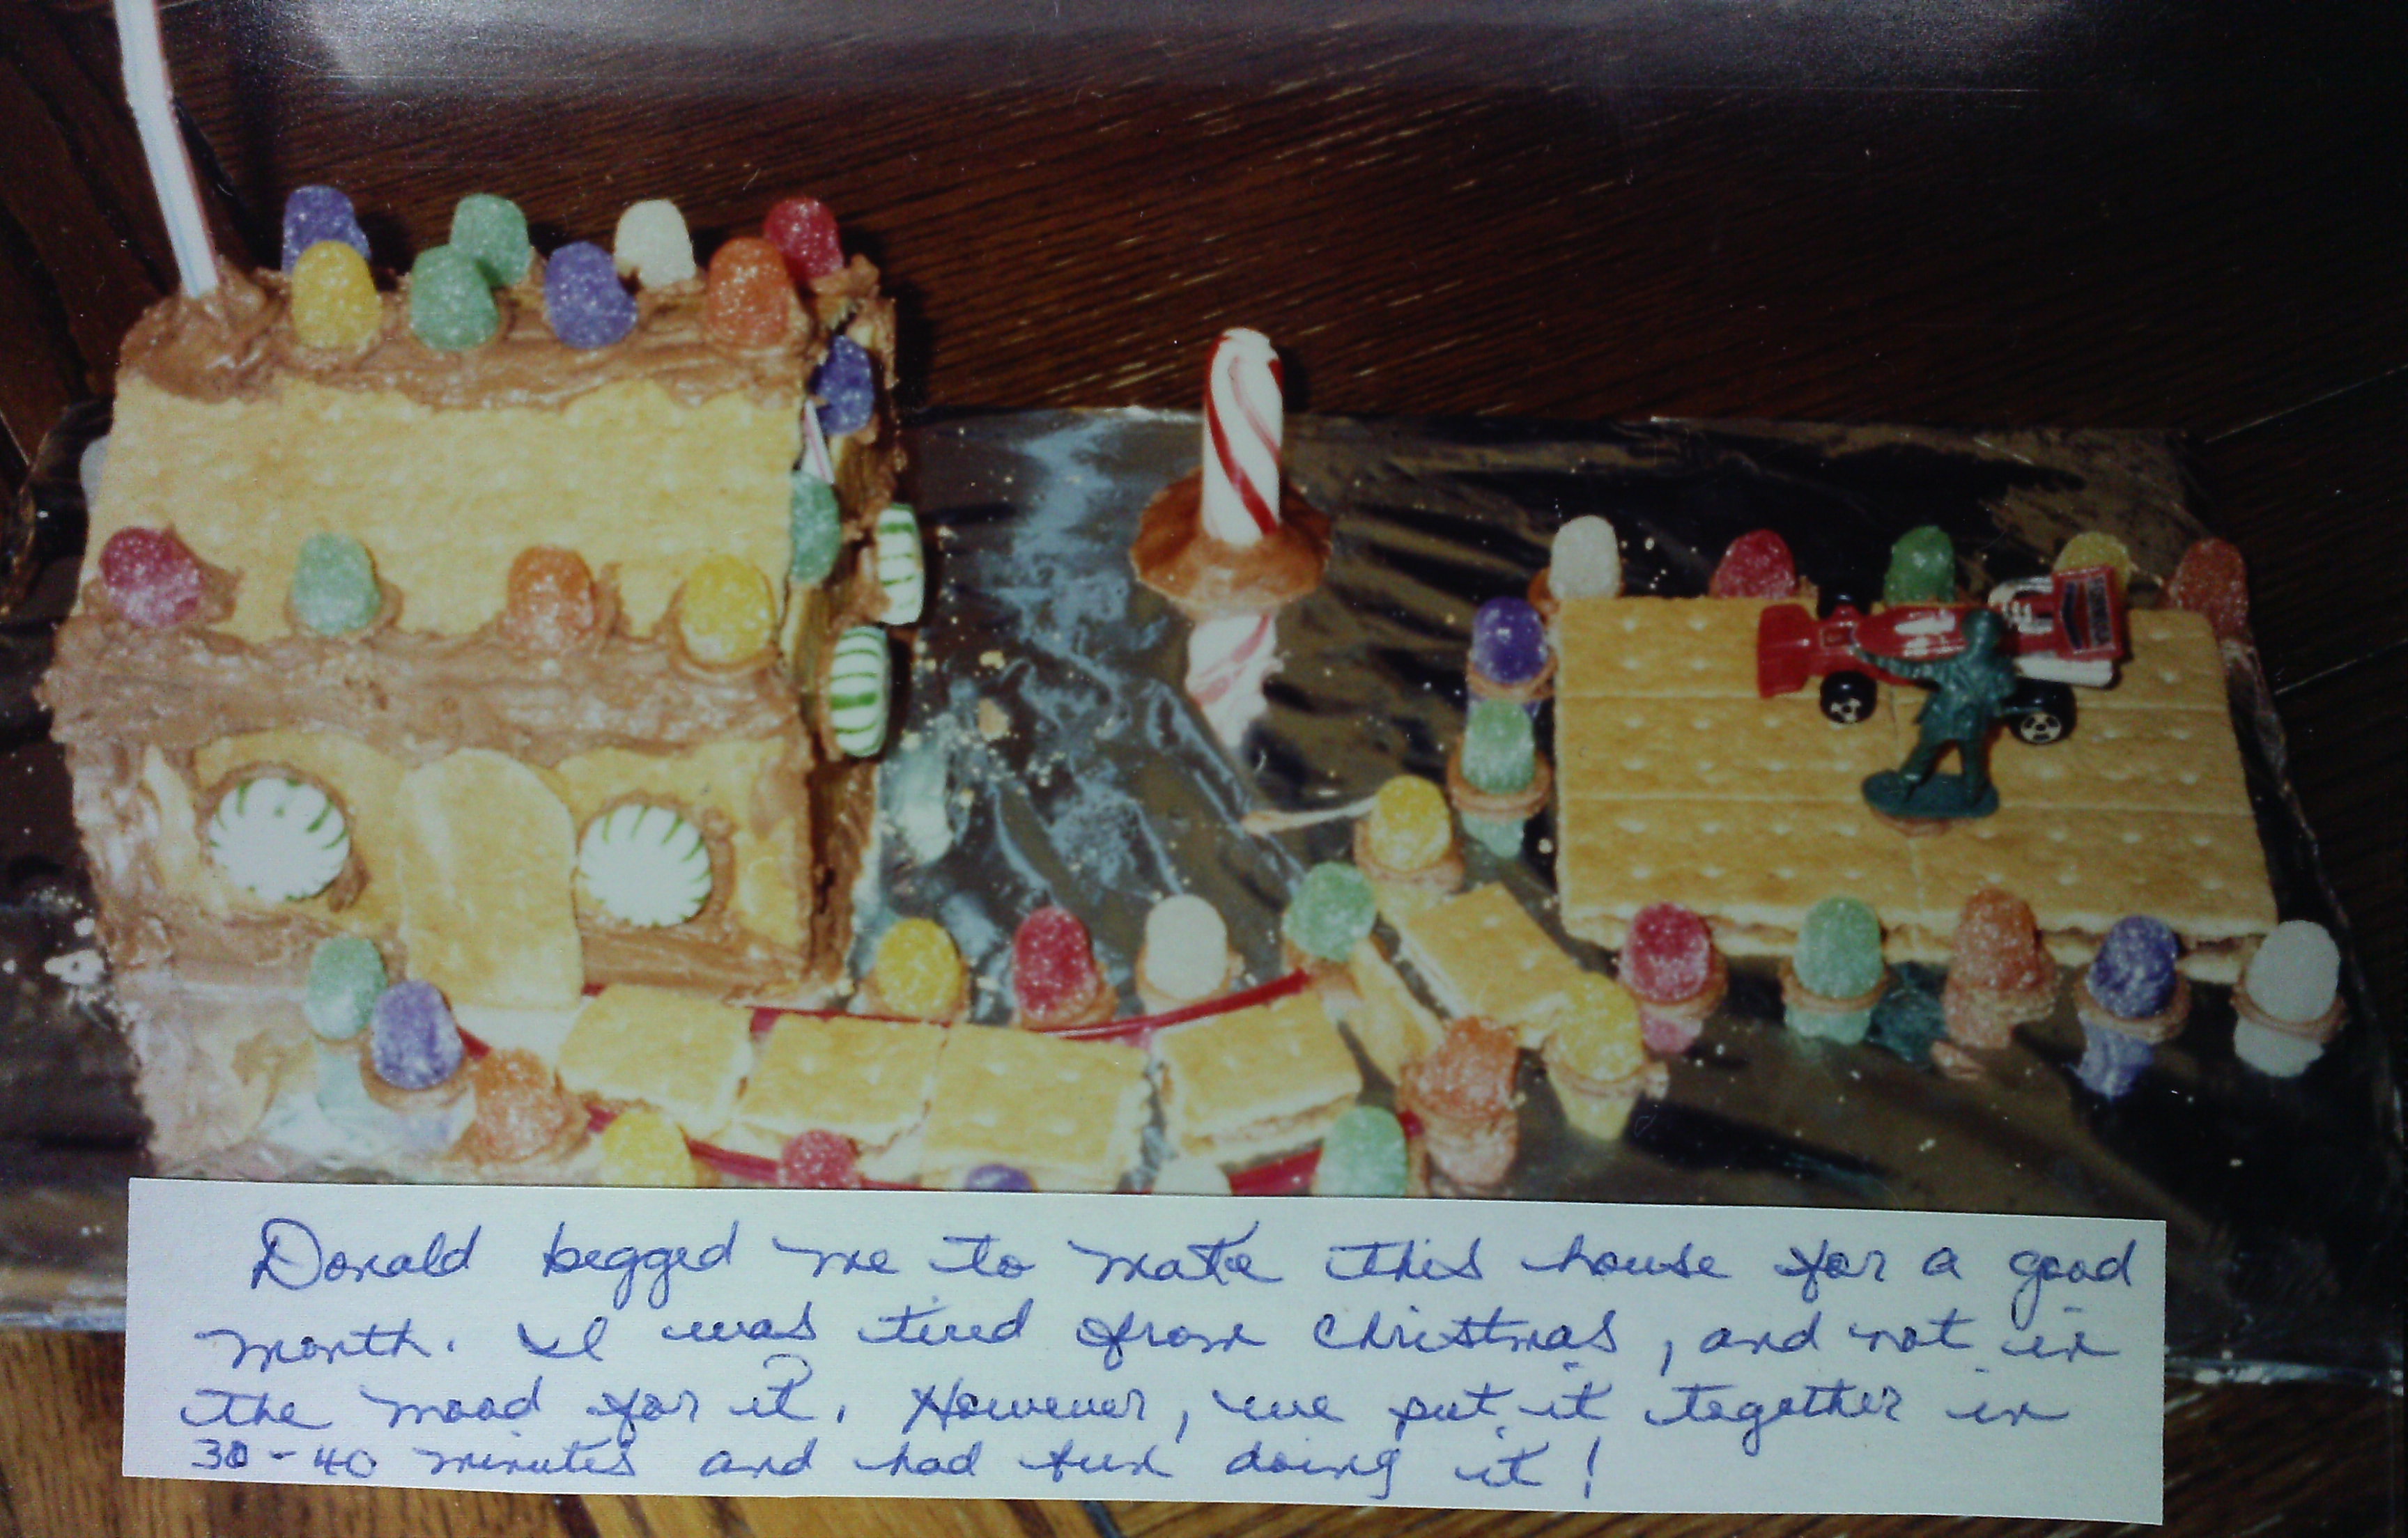 Donald begged me to make this house for a good
month. I was tired from Christmas, and not in
the mood for it. However, we put it together in
30-40 minutes and had fun doing it!